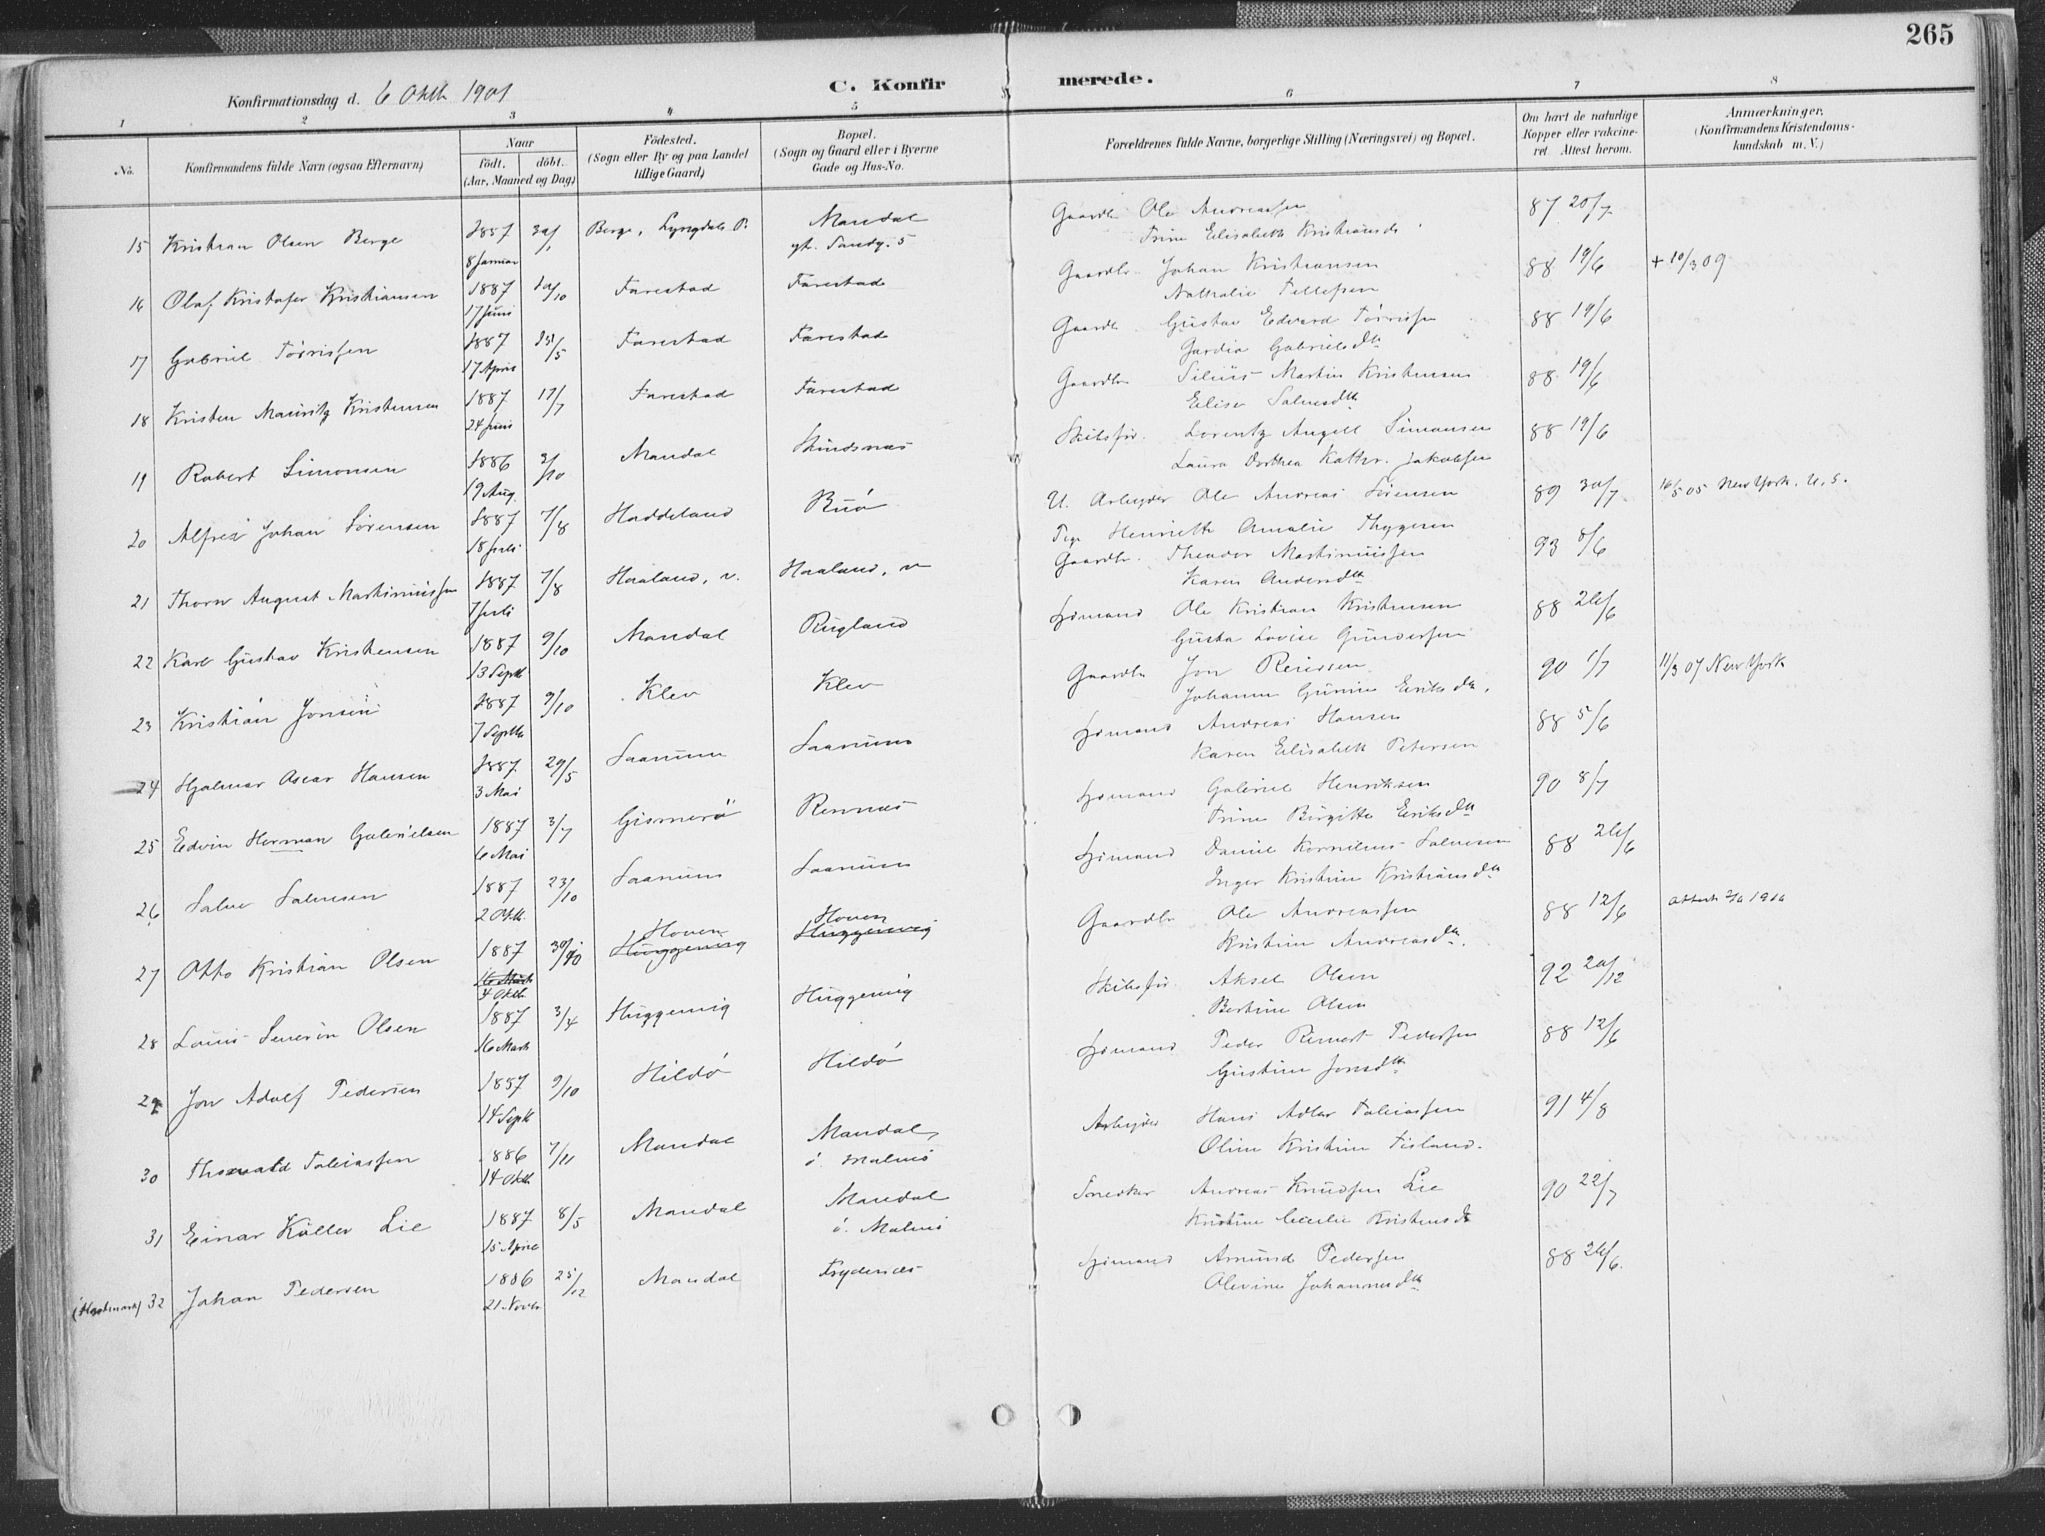 265
Konfirmationsdag d. 6 Oktb 1901
C. Konfirmerede.
1 2 3 4 5 6 7 8
No.
Konfirmandens fulde Navn (ogsaa Efternavn)
Naar
født. døbt.
(Aar, Maaned og Dag)
Fødested.
(Sogn eller By og paa Landet
tillige Gaard)
Bopæl.
(Sogn og Gaard eller i Byerne
Gade og Hus-No.
Forældrenes fulde Navne, borgerlige Stilling (Næringsvei) og Bopæl.
Om havt de naturlige
Kopper eller vakcine-
ret. Attest herom.
Anmærkninger.
(Konfirmandens Kristendoms-
kundskab m. V.)
15 Kristian Olsen Berge 1887 30/1 Berge, Lyngdals P. Mandal Gaardbr Ole Andreassen 87 20/7
8 Januar gt. Sandg. 5 Trine Elisabeth Kristiansd.
16 Olaf Kristofer Kristiansen 1887 10/10 Farestad Farestad Gaardbr. Johan Kristiansen 88 19/6 + 10/3 09
17 Juni Nathalie Tellefsen
17 Gabriel Tørrissen 1887 15/5 Farestad Farestad Gaardb. Gustav Edvard Tørrissen 88 19/6
17 April Gardia Gabrielsdtr
18 Kristen Mauritz Kristensen 1887 17/7 Farestad Farestad Gaardbr Silius Martin Kristensen 88 19/6
24 Juni Elise Salvesdtr
19 Robert Simonsen 1886 3/10 Mandal Skindsnæs Skibsfør. Lorentz Angell Simonsen 88 19/6
19 Aug. Laura Dorthea Kathr. Jakobsen
20 Alfred Johan Sørensen 1887 7/8 Haddeland Buø U. Arbeider Ole Andreas Sørensen 89 30/7 16/5 05 New York. U. S.
18 Juli Pige Henriette Amalie Thygesen
21 Thorv August Martiniussen 1887 7/8 Haaland, v. Haaland, v Gaardbr. Theodor Martiniussen 93 8/6
7 Juli Karen Andersdtr
22 Karl Gustav Kristensen 1887 9/10 Mandal Rugland Sjømand Ole Kristian Kristensen 88 26/6
13 Septb Gusta Lovise Gundersen
23 Kristian Jonsen 1887 9/10 Klev Klev Gaardbr Jon Reiersen 90 1/7 11/3 07 New York
7 Septb Johanne Gunvie Eriksdtr.
24 Hjalmar Oscar Hansen 1887. 29/5 Saanum Saanum Sjømand Andreas Hansen 88 5/6
3 Mai Karen Elisabeth Petersen
25 Edvin Herman Gabrielsen 1887 3/7 Gismerø Rennæs Sjømand Gabriel Henriksen 90 8/7
6 Mai Trine Birgitte Eriksdtr
26 Salve Salvesen 1887 23/10 Saanum Saanum Sjømand Daniel Kornelius Salvesen 88 26/6
2 Oktb. Inger Kristine Kristiansdtr
27 Otto Kristian Olsen 1887 30/10 Hoven Huggenvig Hoven Huggenvig Gaardbr Ole Andreassen 88 12/6 1910
16 Marts 4 Oktb. Kristine Andreasdtr.
28 Louis Severin Olsen 1887 3/4 Huggenvig Huggenvig Skibsfør. Aksel Olsen 92 20/12
16 Marts Bertine Olsen
29 Jon Adolf Pedersen 1887 9/10 Hildø Hildø Sjømand Peder Reinert Pedersen 88 12/6
14 Septb Gustine Jonsdtr
30 Thorvald Tobiassen 1886 7/11 Mandal Mandal, Arbeider Hans Adler Tobiassen 91 4/8
14 Oktb. ø. Malmø Oline Kristine Fisland.
31 Einar Køller Lie 1887 8/5 Mandal Mandal Snedker Andreas Knudsen Lie 90 22/7
15 April ø. Malmø Kristine Cecilie Kristensdtr
(Hestmark) 32 Johan Pedersen 1886 25/12 Mandal Frydenes Sjømand Amund Pedersen 88 26/6.
21 Novbr. Olevine Johannesdtr